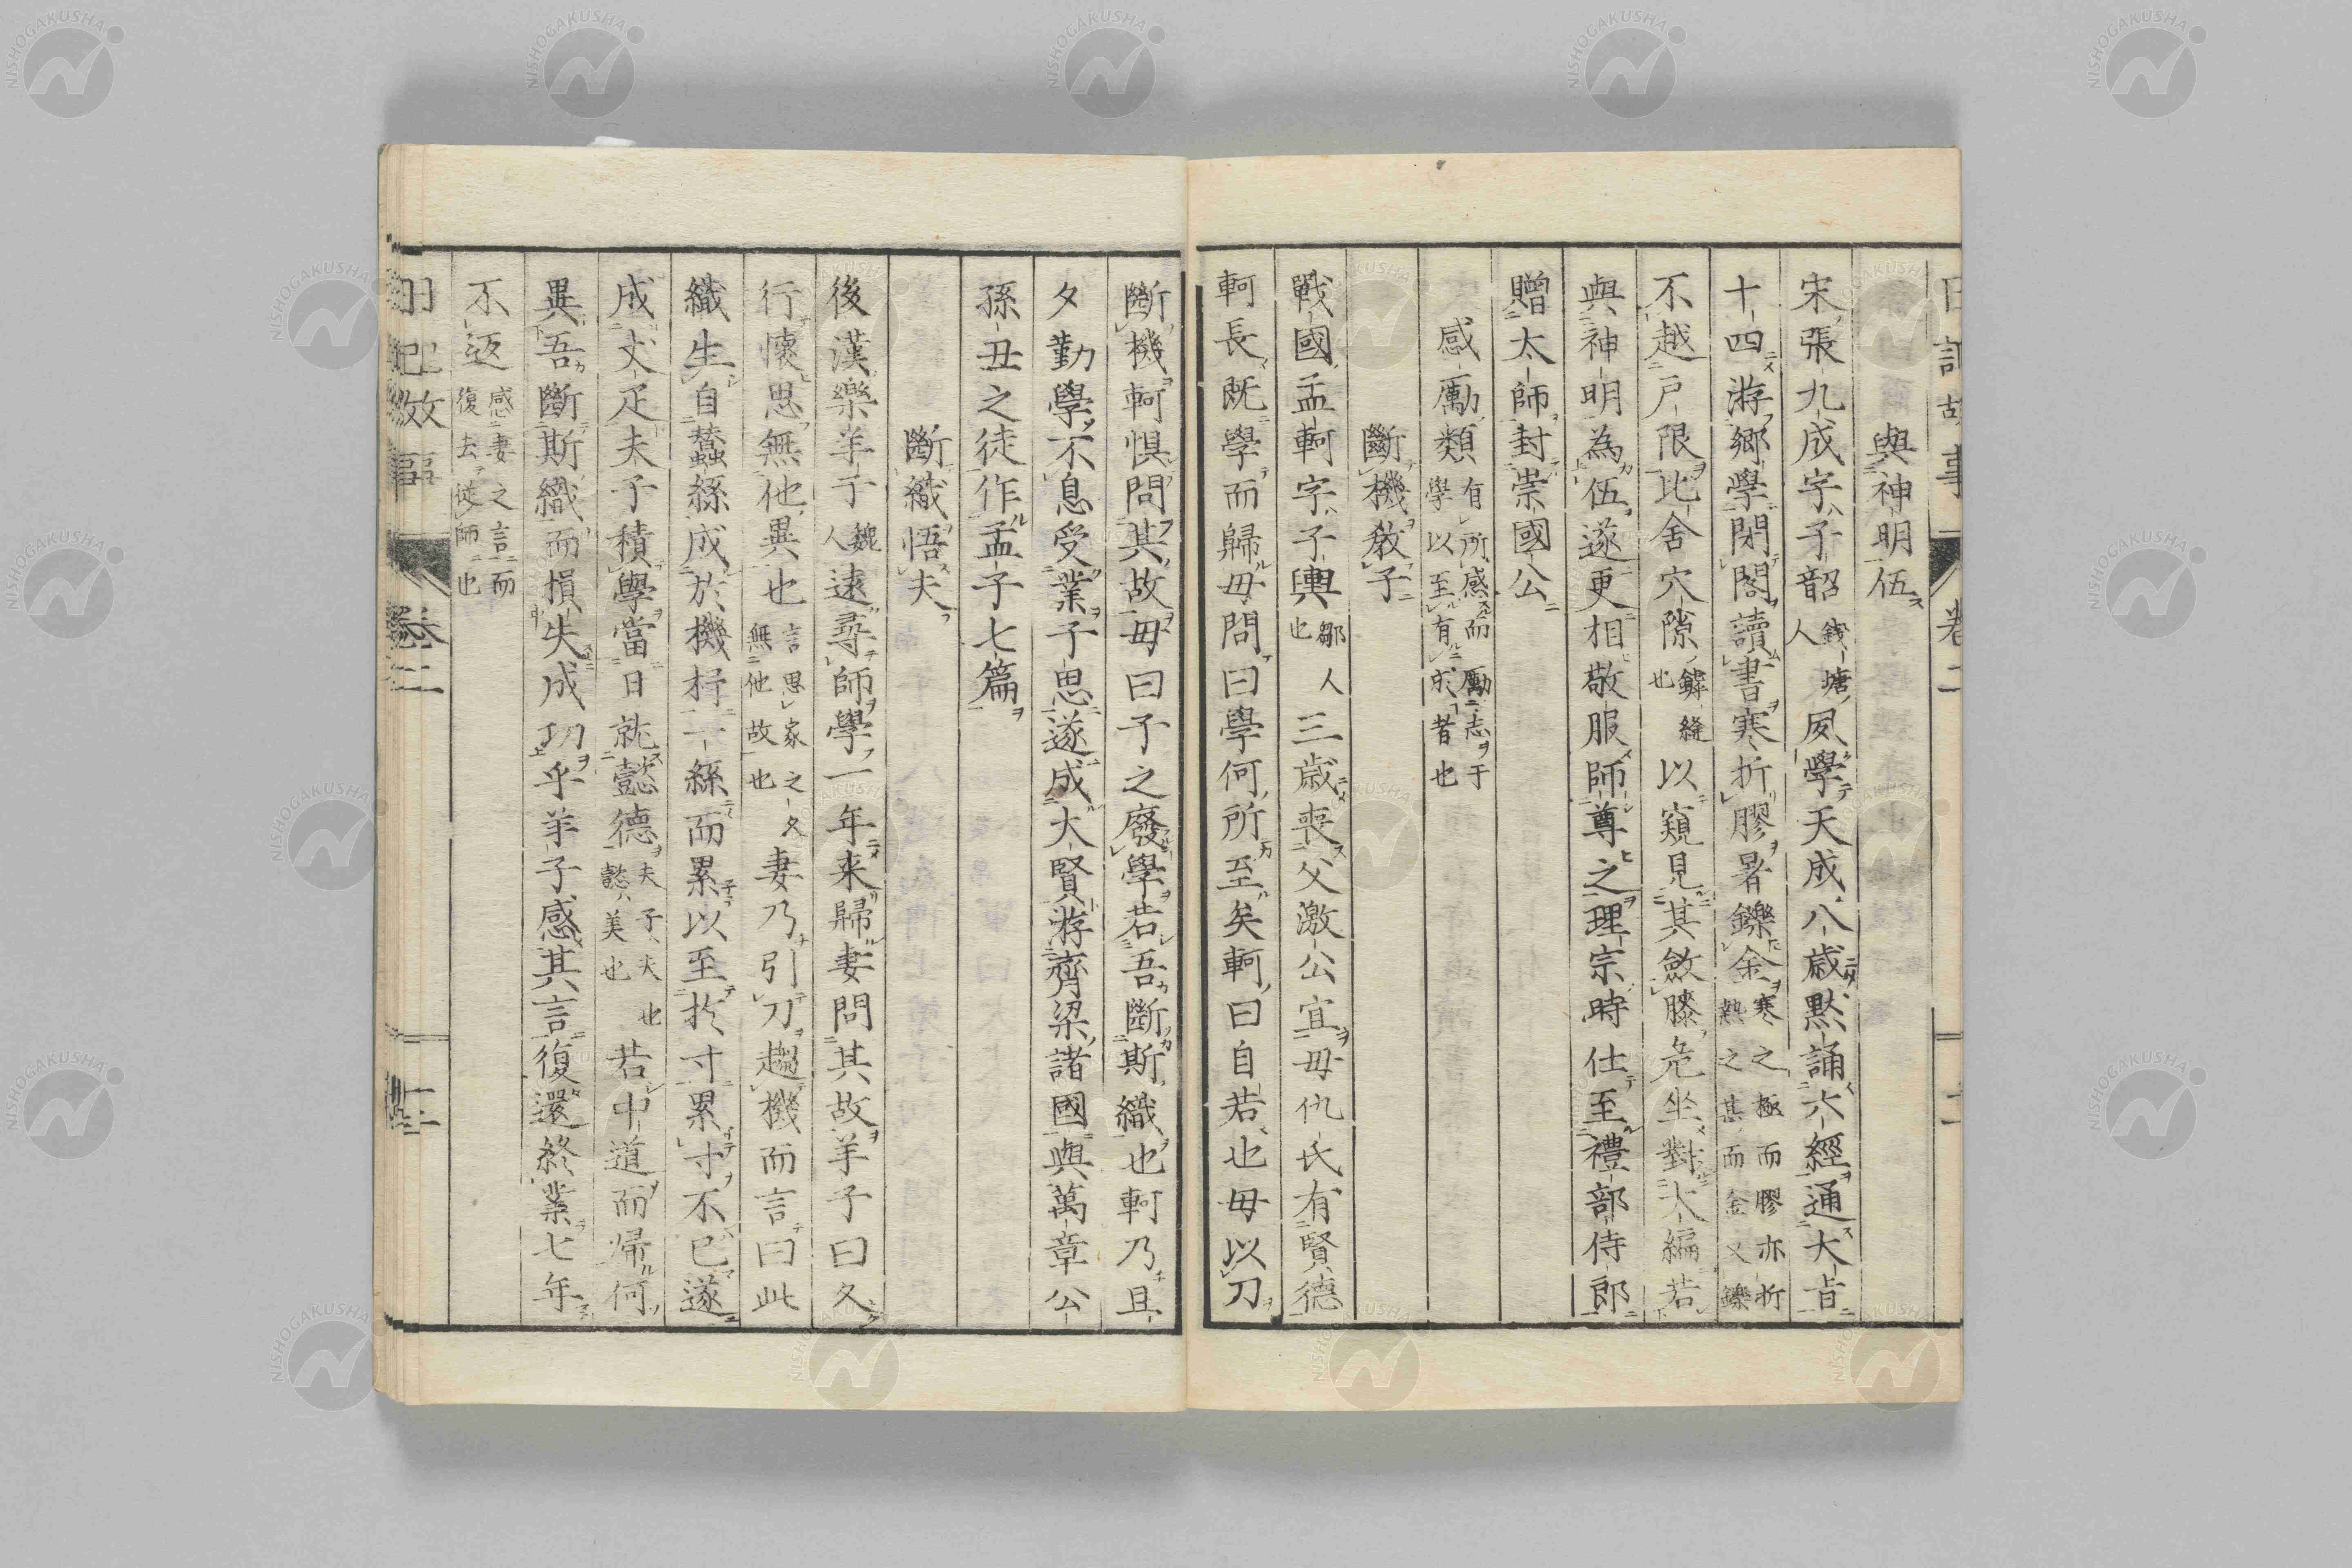 日記故事 卷二
與神明伍
宋張九成字子韶錢塘人夙學天成八歲默誦六經通大旨
十四游鄉學閉閣讀書寒折膠暑鑠金寒之極而膠亦折熱之甚而金又鑠
不越戶限比舍穴隙鏬縫也以窺見其斂膝危坐對大編若
與神明為伍遂更相敬服師尊之理宗時仕至禮部侍郎
贈太師封崇國公
感勵類有所感而勵志于學以至有成者也
斷機敎子
戰國孟軻字子輿鄒人也三歲喪父激公宜母仇氏有賢德
軻長既學而歸母問曰學何所至矣軻曰自若也母以刀
斷機軻懼問其故母曰子之廢學若吾斷斯織也軻乃且
夕勤學不息受業子思遂成大賢游齊梁諸國與萬章公
孫丑之徒作孟子七篇
斷織悟夫
後漢樂羊子魏人遠尋師學一年来歸妻問其故羊子曰久
行懷思無他異也言思家之久無他故也妻乃引刀趨機而言曰此
織生自蠶絲成於機杼一絲而累以至於寸累寸不已遂
成丈疋夫子積學當日就懿德夫子夫也懿美也若中道而帰何
異吾斷斯織而損失成功乎羊子感其言復還終業七年
不返感妻之言而復去從師也
日記故事 卷二 十二
NISHOGAKUSHA